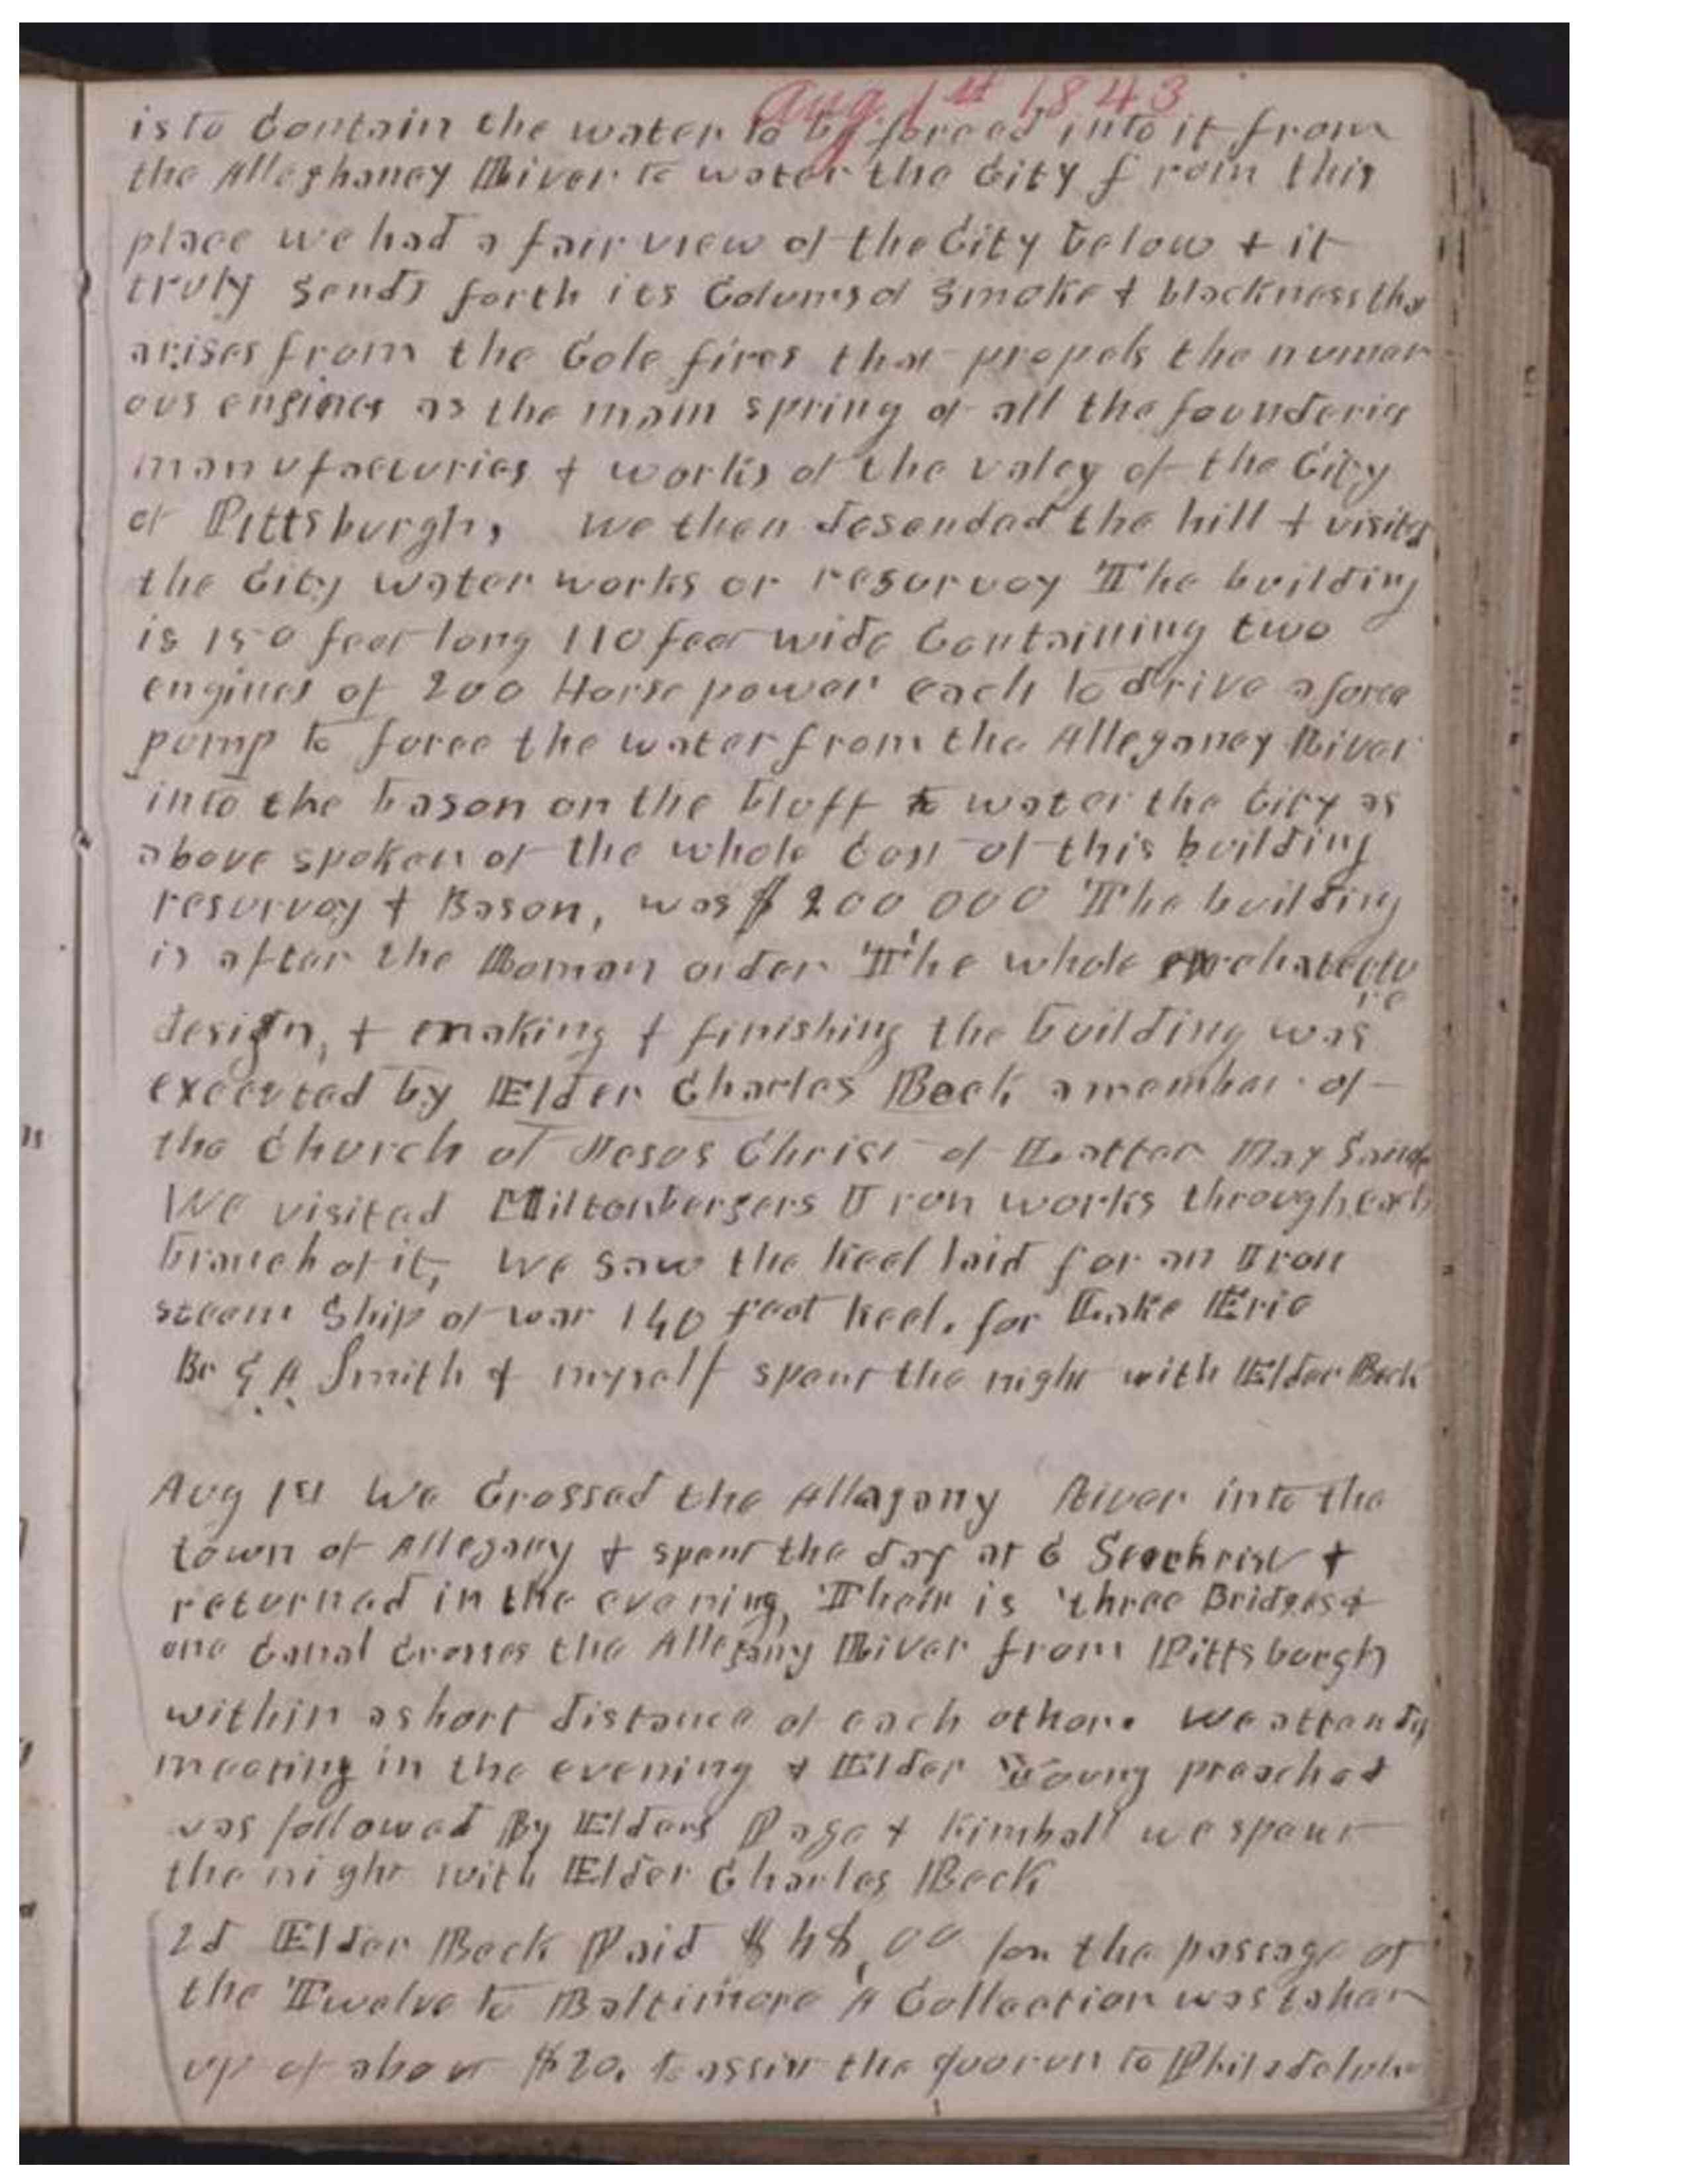 Aug 1st 1843
is to Contain the water to by forced into it from
the Alleghaney River to water the City from this
place we had a fair view of the City below & it
truly sends forth its Colums of Smoke & blackness tha
arises from the Cole fires that propels the numer
ous engines as the main spring of all the founderies
manufacturies & works of the valey of the City
of Pittsburgh, we then desended the hill & visited
the City water works or resurvoy The building
is 150 feet long 110 feet wide Containing two
engines of 200 Horse power each to drive a force
pump to force the water from the Alleganey River
into the bason on the bluff to water the City as
above spoken of the whole Cost of this building
resurvoy & Bason, was $200,000 The building
is after the Roman order The whole archatectu
re
design, & making & finishing the building was
executed by Elder Charles Beck a member of
the Church of Jesus Christ of Latter Day Saints
We visited Miltonbergers Iron works through each
branch of it, We saw the keel laid for an Iron
steem Ship of war 140 feet keel. for Lake Erie
Br G A Smith & myself spent the night with Elder Beck
Aug 1st We Crossed the Allagany River into the
town of Allegany & spent the day at C Seechrist &
returned in the evening, Their is three Bridges &
one Canal Crosses the Allegany River from Pittsburgh
within a short distance of each other. We attended
meeting in the evening & Elder Young preached
was followed By Elders Page & Kimball we spent
the night with Elder Charles Beck
2d Elder Beck Paid $48,00 for the passage of
the Twelve to Baltimore A Collection was taken
up of about $20. to assist the quorum to Philadelphia